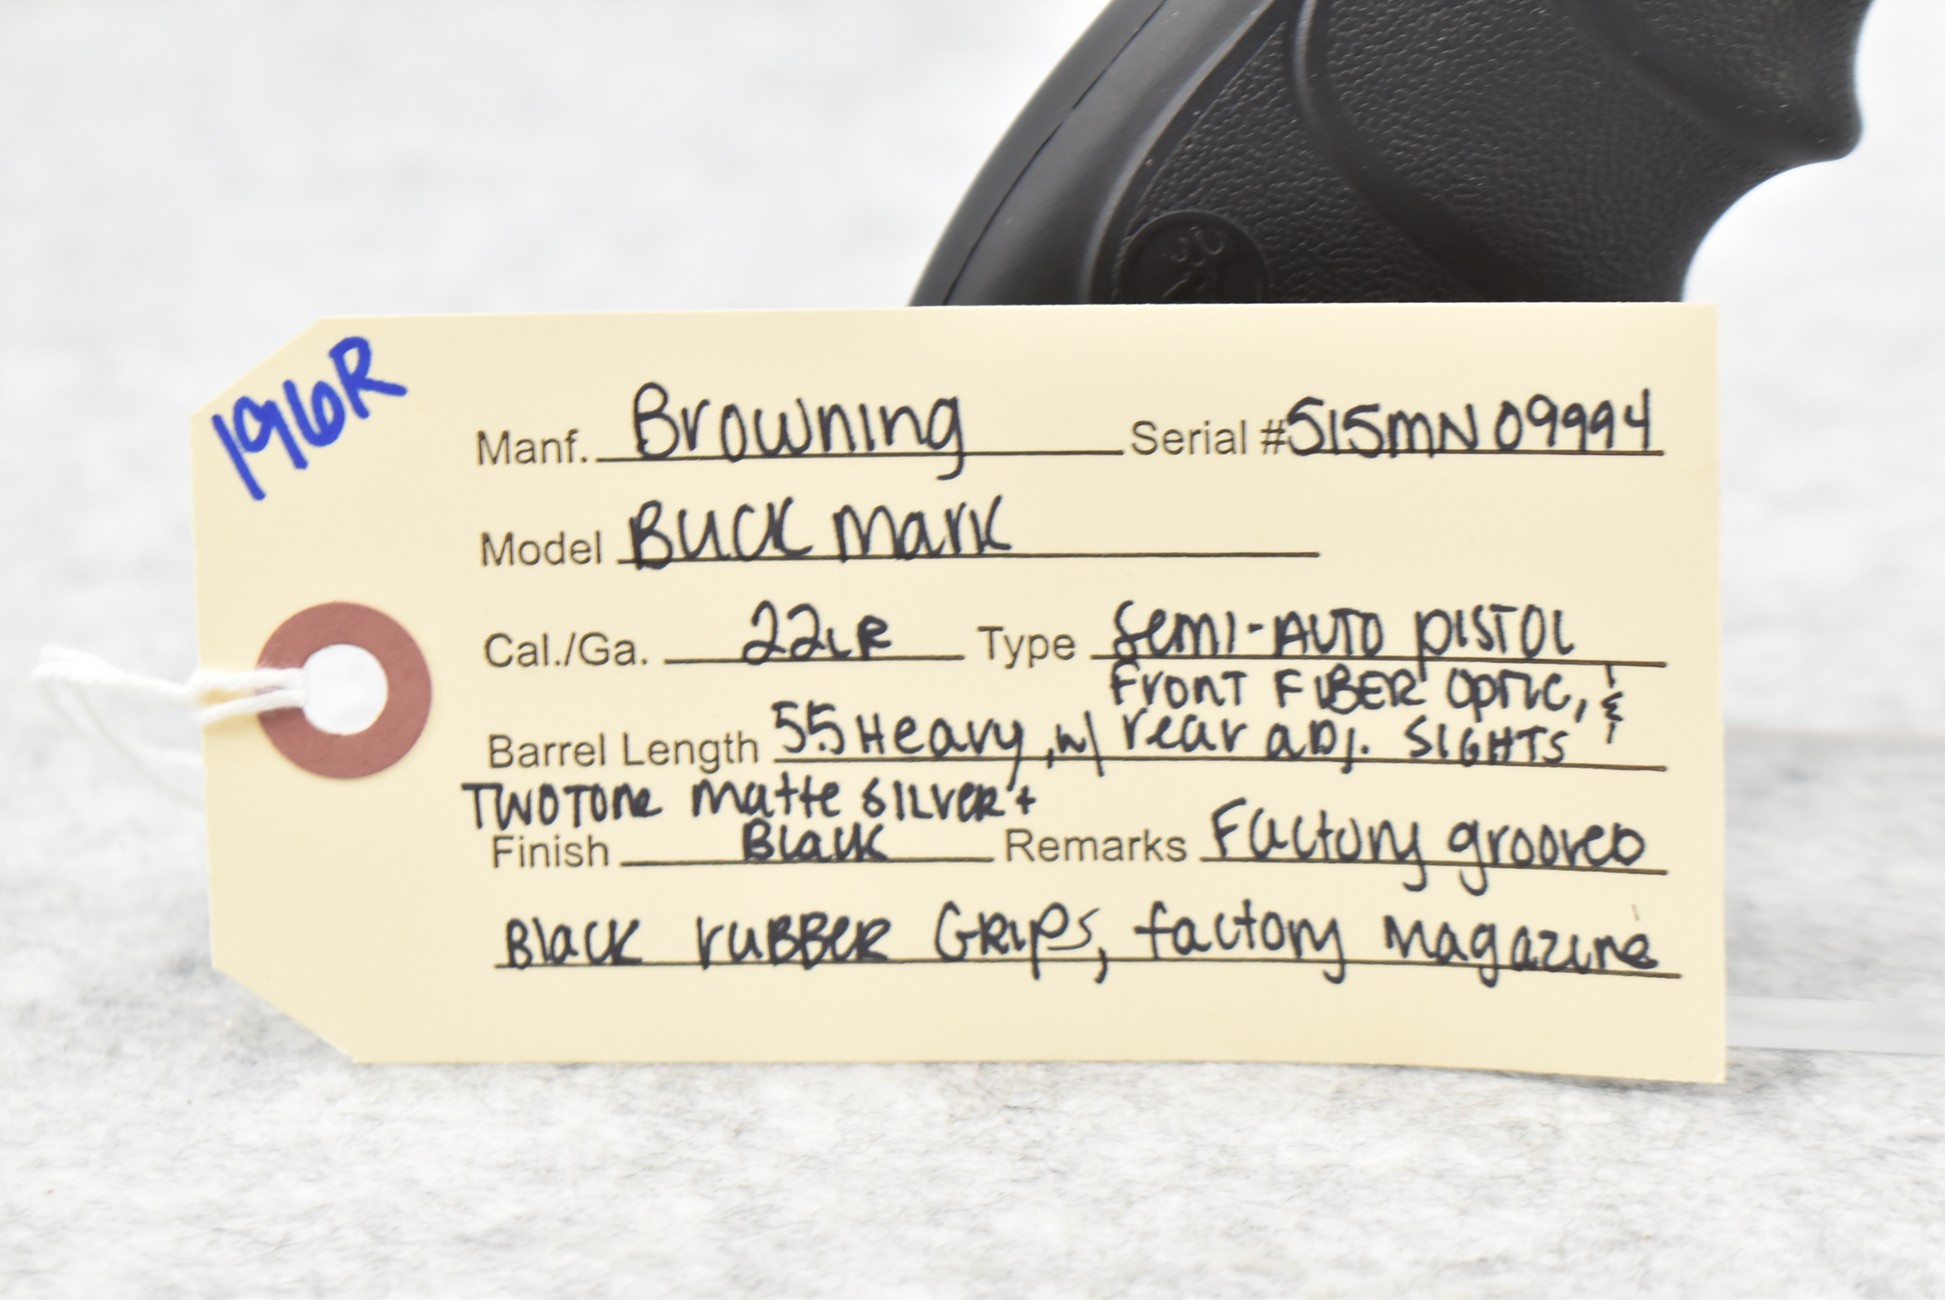 196R
Manf. Browning Serial # 515MN09994
Model BUCK MARK
Cal./Ga. 22LR Type Semi-AUTO PISTOL
FRONT FIBER OPTIC, &
Barrel Length 5.5 Heavy, w/ rear ADJ. SIGHTS
TWOTONE matte SILVER +
Finish Black Remarks Factory grooved
Black rubber Grips, factory magazine